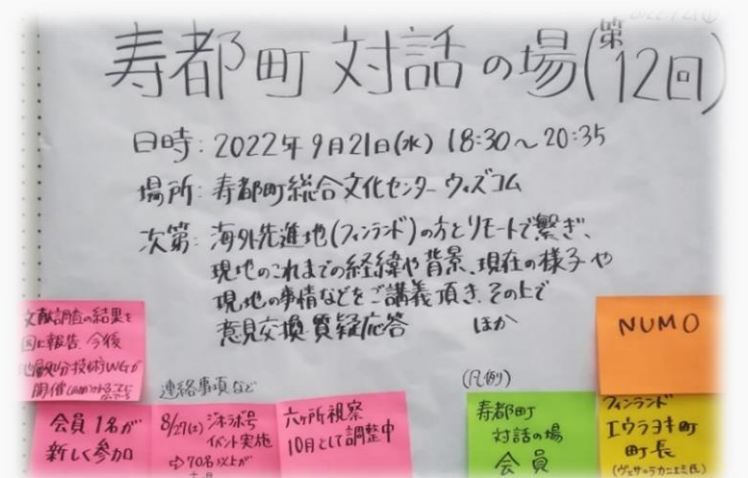 寿都町 対話の場(第12回)
日時: 2022年9月21日(水) 18:30〜20:35
場所: 寿都町総合文化センター ウィズコム
次第: 海外先進地(フィンランド)の方とリモートで繋ぎ、
現地のこれまでの経緯や背景、現在の様子や
現地の事情などをご講義頂き、その上で
意見交換 質疑応答 ほか
文献調査の結果を
国に報告 今後
地層処分技術WGが
開催
連絡事項など
会員1名が
新しく参加
8/27(土) ジオラボ号
イベント実施
⇨70名以上が
六ヶ所視察
10月として調整中
(凡例)
寿都町
対話の場
会員
NUMO
フィンランド
エウラヨキ町
町長